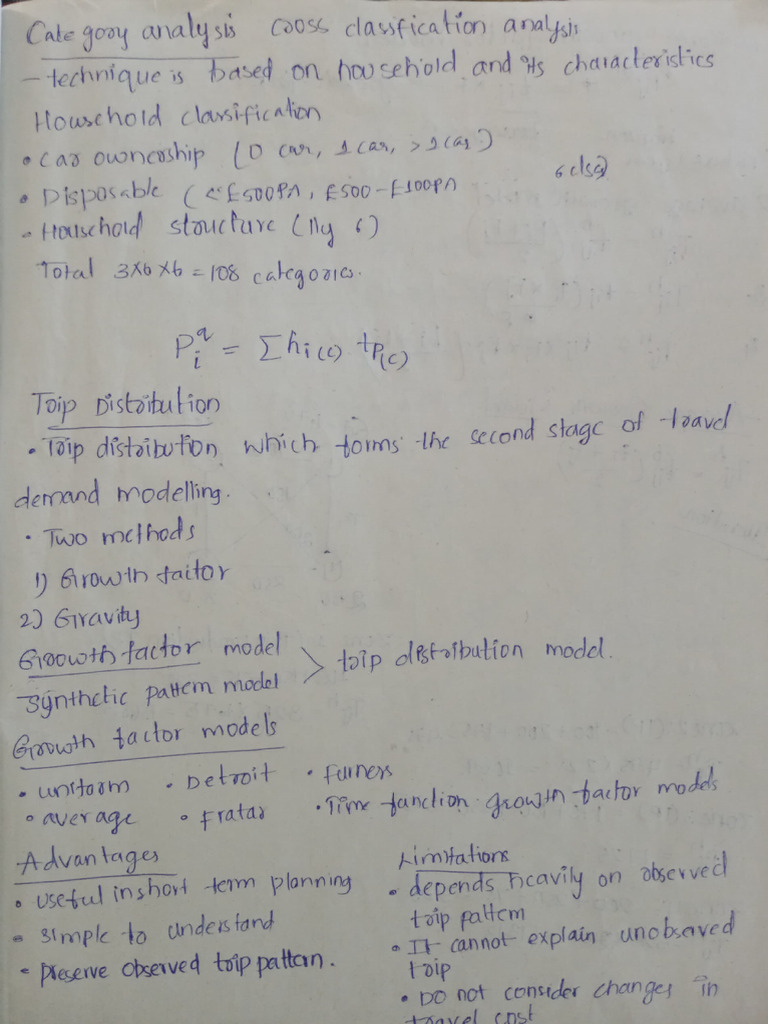 Category analysis cross classification analysis
- technique is based on household and its characteristics
Household classification
• Car ownership (0 car, 1 car, > 1 car)
• Disposable (<£500PA, £500 - £100PA
6 class
• Household structure (lly 6)
Total 3x6x6 = 108 categories.
P_i^q = Σ h_i(c) t_p(c)
Trip Distribution
• Trip distribution which forms the second stage of travel
demand modelling.
• Two methods
1) Growth factor
2) Gravity
Growth factor model
Synthetic pattern model > trip distribution model.
Growth factor models
• uniform • Detroit • Furners
• average • Fratar • Time function growth factor models
Advantages
• useful in short term planning
• simple to understand
• preserve observed trip pattern.
Limitations
• depends heavily on observed
trip pattern
• It cannot explain unobserved
trip
• Do not consider changes in
travel cost